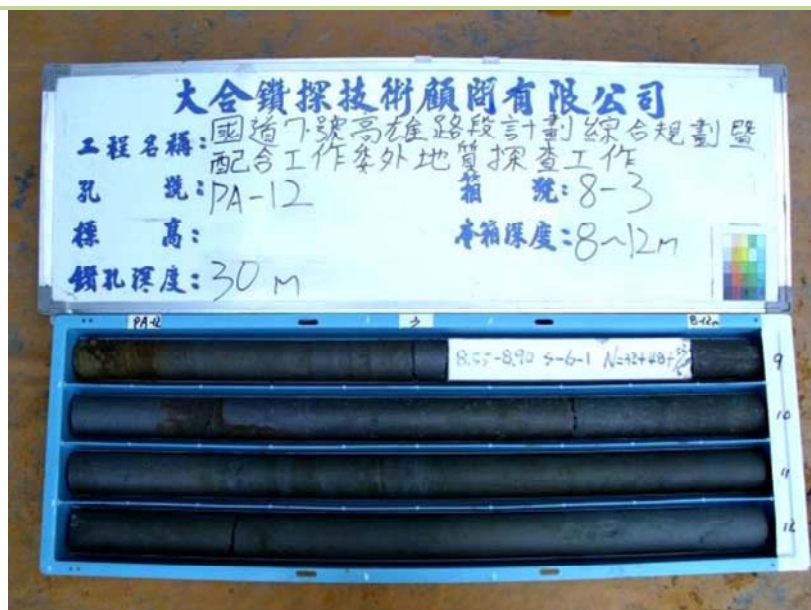 大合鑽探技術顧問有限公司
工程名稱：國道7號高雄路段計劃綜合規劃暨
配合工作委外地質探查工作
孔號：PA-12 箱號：8-3
標高： 本箱深度：8~12m
鑽孔深度：30m
PA-12 3 8-12m
8.55-8.90 S-6-1 N=32+48+
9
10
11
12